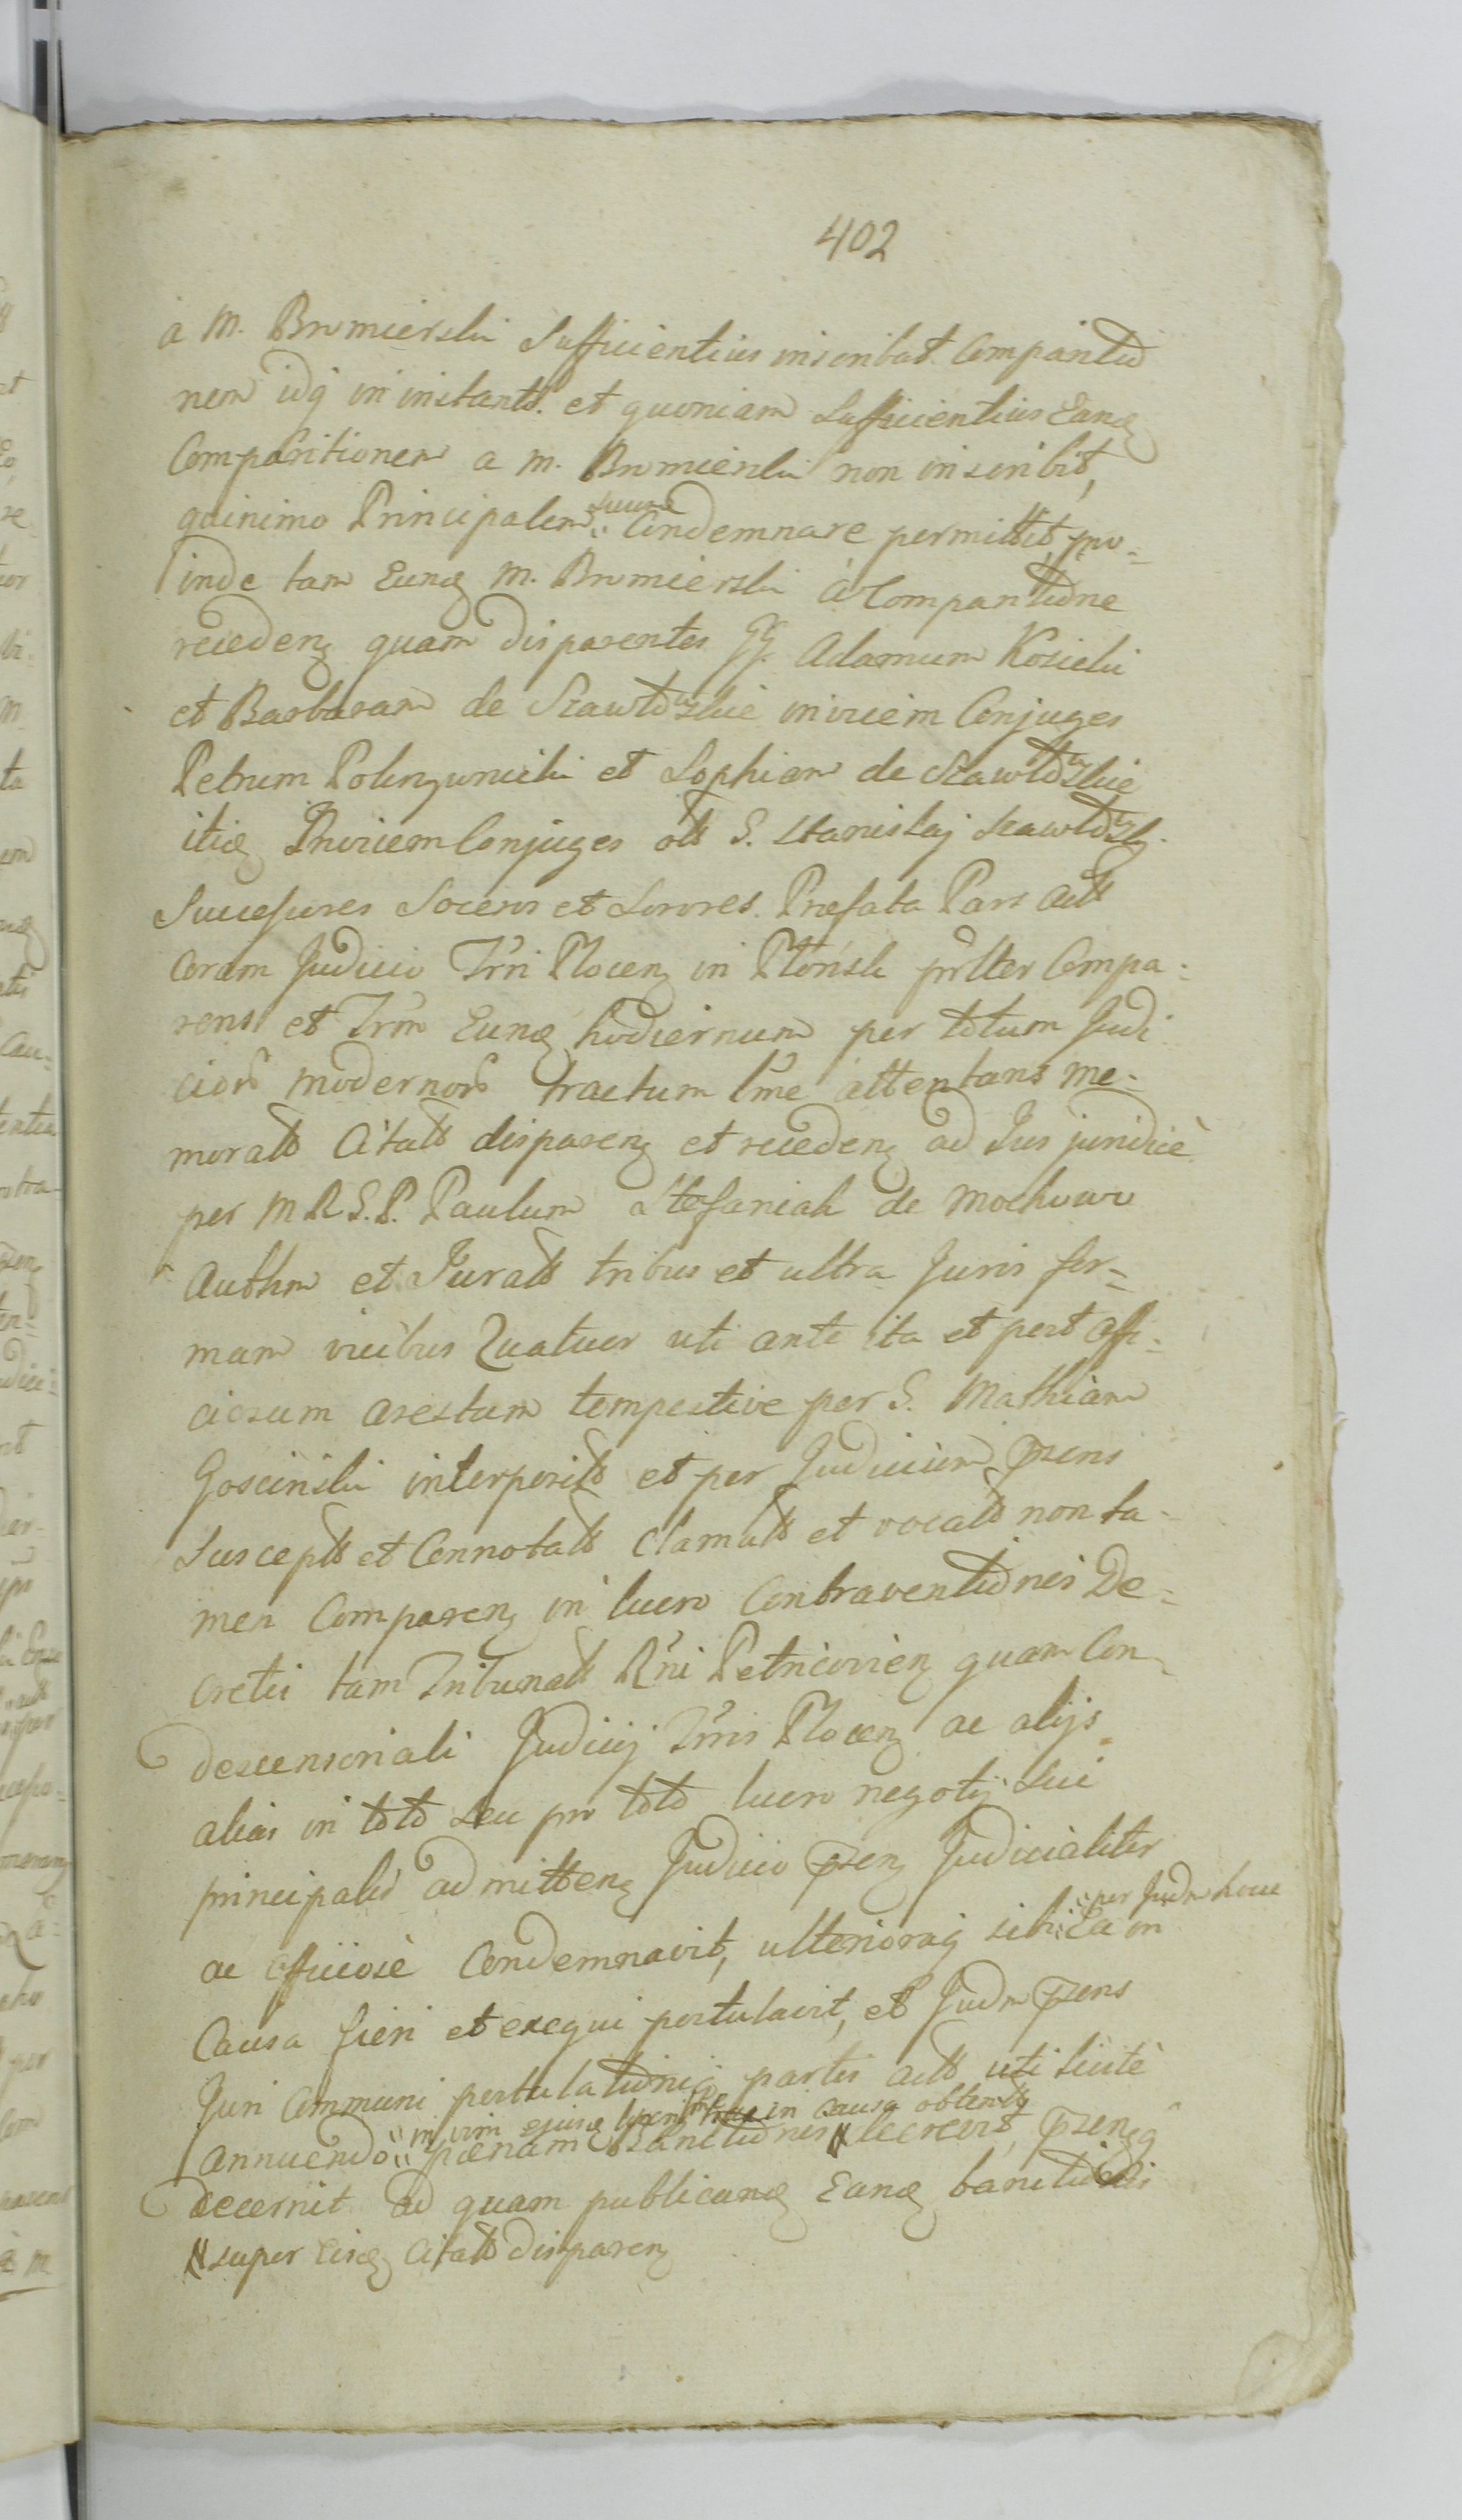 402
a M. Bromierski Sufficientius inscribat Comparitio
nem idq in instanti. et quoniam Sufficientius Eandem
Comparitionem a M. Bromierski non inscribit,
quinimo Principalem suum Condemnare permittit, pro=
inde tam Eundem M. Bromierski a Comparitione
recedenz quam disparentes GG. Adamum Kosicki
et Barbaram de invicem Conjuges
Petrum et Sophiam de
itid Invicem Conjuges olt G. Stanislaj
Successores Soceros et Sorores. Praefata Pars Act
Coram Judicio Trri Plocen in Płonsk prlter Compa=
rens et Trm Eund hodiernum per totum Judi
ciorum modernorum tractum lme attentans me=
morat Citat disparenz et recedenz ad Jus juridicè
per M R S. P. Paulum Stefaniak de Mochowo
Authm et Jurat tribus et ultra Juris for=
mam vicibus Quatuor uti ante ita et post Offi=
ciosum arestum tempestive per G. Mathiam
Goscinski interposit et per Judicium przens
Suscept et Connotat Clamat et vocat non ta=
men Comparenz in lucro Contraventionis De=
creti tam Tribunal Rni Petricovien quam Con=
descensoriali Judicij Trris Plocen ac alijs
alias in toto seu pro toto lucro negotij sui
principalis admittenz Judicio przenz Judicialiter
ac officiosè Condemnavit, ulterioraq sibi per Judm hocce Ea in
Causa fieri et exequi postulavit, et Judm przens
Juri Communi postulationiq partis act uti licitè
annuendo in vim ejusd in causa obtent paenam Banitionis decrevit, przenzq
decernit Ad quam publicand Eand banitionis
super iisd Citat disparenz